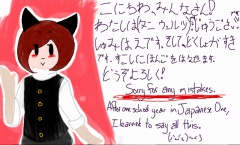 こにちわ、みんなさん!
わたしは(タニ ウェルツ)じゅうごさい
しゅみは、えです。そして、どくしょがすき
です。すこしにほんごをはなせます。
どうぞよろしく!
Sorry for any mistakes.
After one school year in Japanese One,
I learned to say all this.